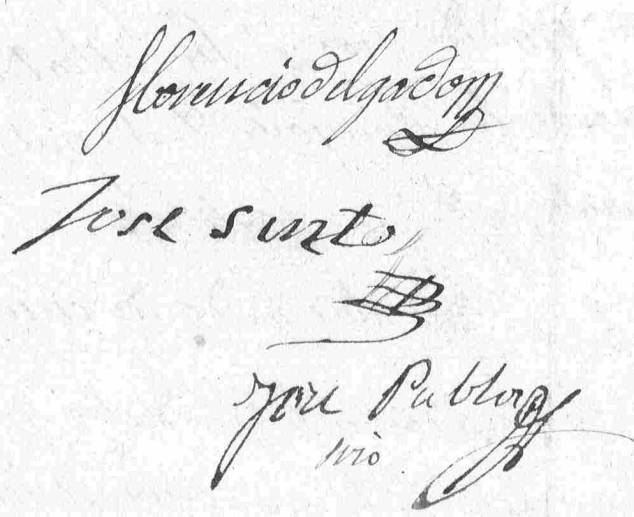 florencio delgado
Jose sinto
Jose Pablo